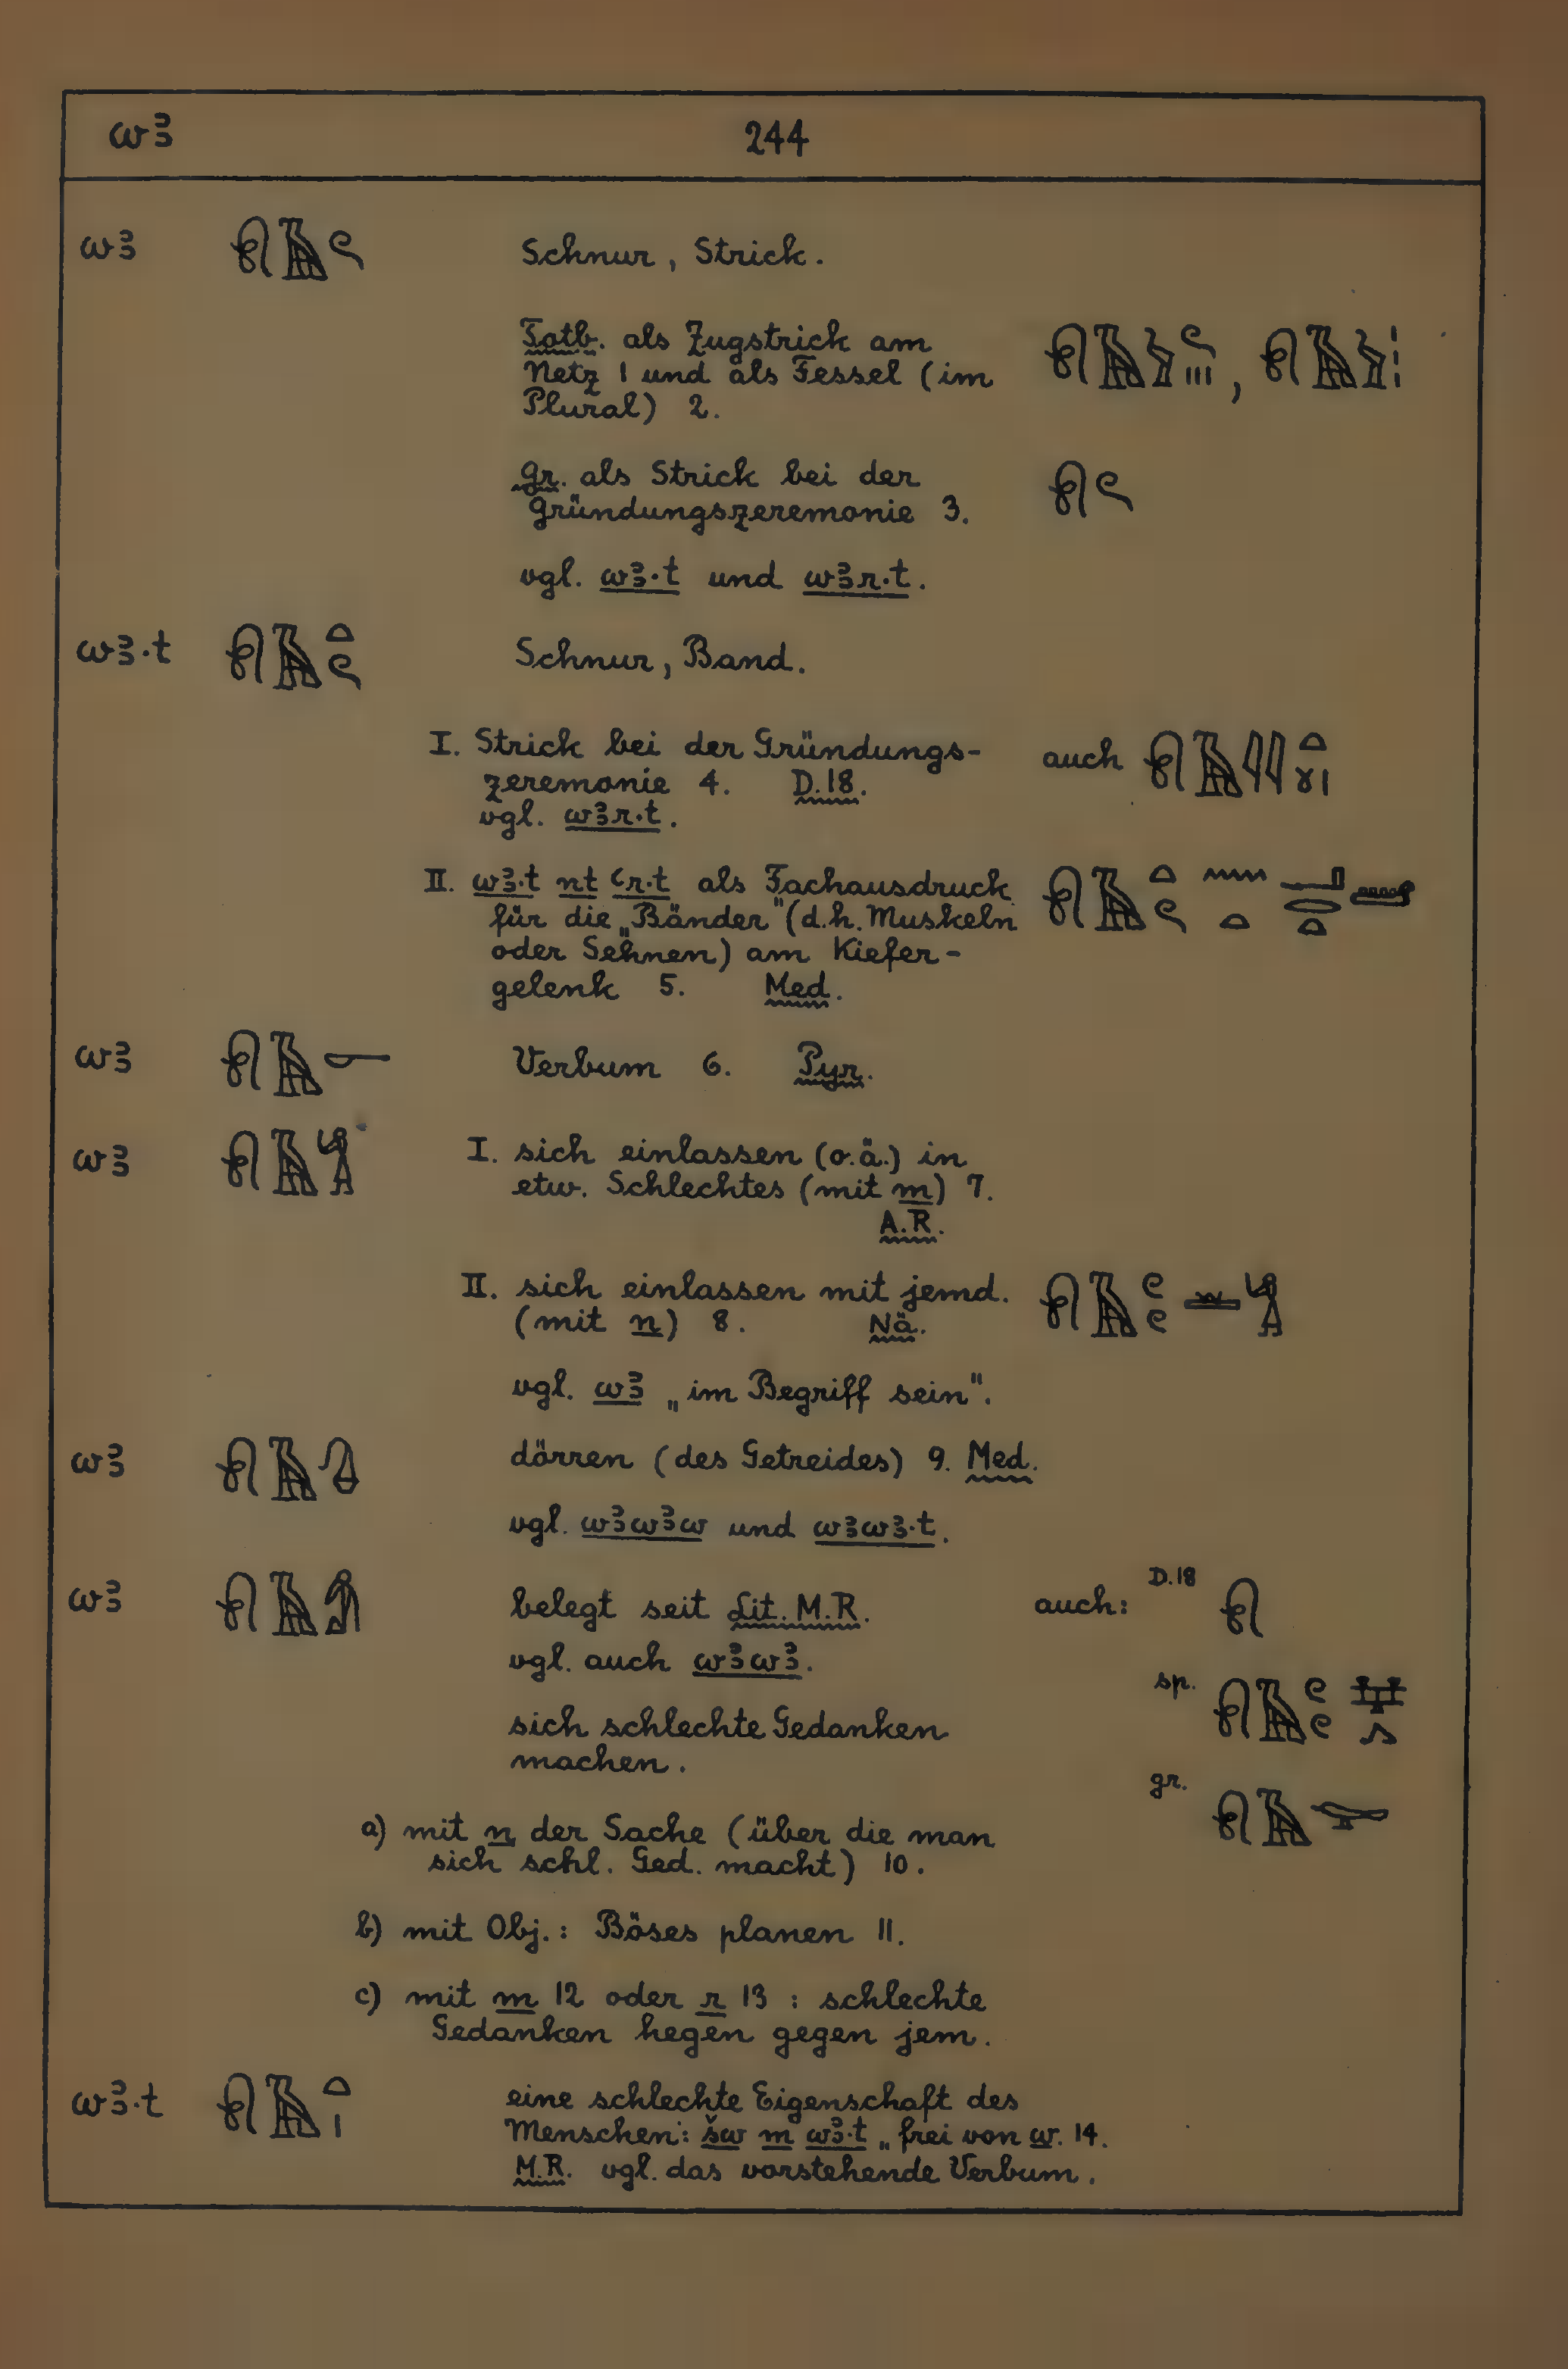 wꜣ 244
wꜣ 𓍯𓄿𓍢 Schnur, Strick.
Totb. als Zugstrick am
Netz 1 und als Fessel (im
Plural) 2.
gr. als Strick bei der
Gründungszeremonie 3.
vgl. wꜣ·t und wꜣr·t.
wꜣ·t 𓍯𓄿𓏏𓍢 Schnur, Band.
I. Strick bei der Gründungs- auch 𓍯𓄿𓇌𓏏𓍱𓏤
zeremonie 4. D.18.
vgl. wꜣr·t.
II. wꜣ·t nt ꜥr·t als Fachausdruck
für die „Bänder" (d.h. Muskeln
oder Sehnen) am Kiefer-
gelenk 5. Med.
wꜣ 𓍯𓄿 Verbum 6. Pyr.
wꜣ 𓍯𓄿𓀁 I. sich einlassen (o.ä.) in
etw. Schlechtes (mit m) 7.
A.R.
II. sich einlassen mit jemd.
(mit n) 8. Nä.
vgl. wꜣ „im Begriff sein".
wꜣ 𓍯𓄿𓊮 dörren (des Getreides) 9. Med.
vgl. wꜣwꜣw und wꜣwꜣ·t.
wꜣ 𓍯𓄿 belegt seit Lit. M.R. auch: D.18 𓍯
vgl. auch wꜣwꜣ.
sp.
sich schlechte Gedanken
machen.
gr.
a) mit n der Sache (über die man
sich schl. Ged. macht) 10.
b) mit Obj.: Böses planen 11.
c) mit m 12 oder r 13 : schlechte
Gedanken hegen gegen jem.
wꜣ·t 𓍯𓄿𓏏𓏤 eine schlechte Eigenschaft des
Menschen: šw m wꜣ·t „frei von w. 14.
M.R. vgl. das vorstehende Verbum.